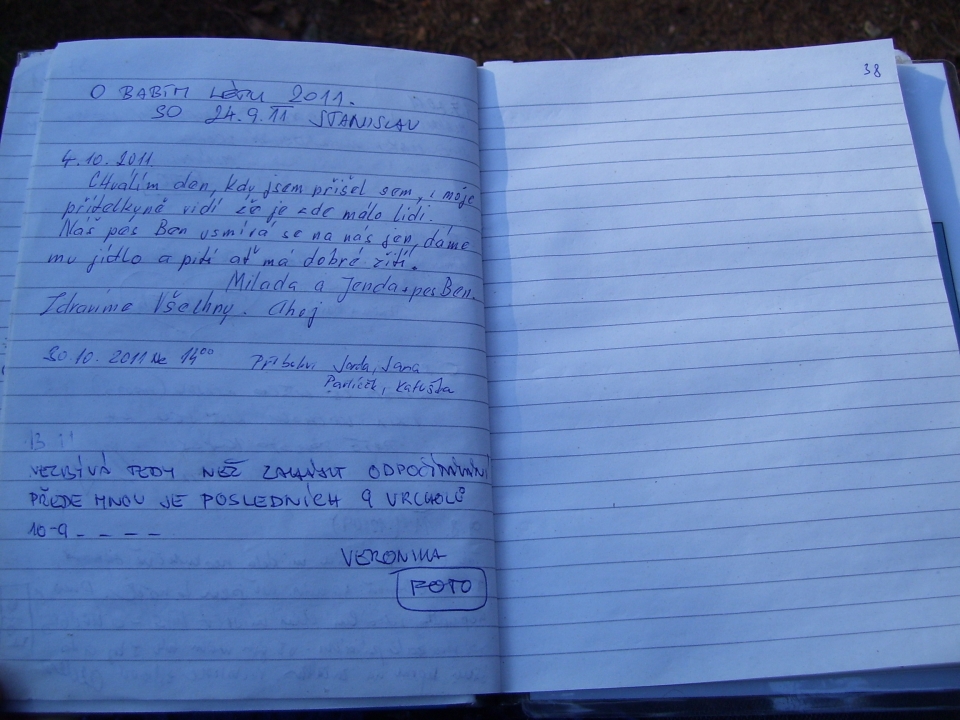 38
O BABÍM LÉTU 2011.
SO 24.9.11 STANISLAV
4.10.2011
Chválím den, kdy jsem přišel sem, i moje
přítelkyně vidí že je zde málo lidí.
Náš pes Ben usmívá se na nás jen, dáme
mu jídlo a pití ať má dobré žití.
Milada a Jenda + pes Ben.
Zdravíme Všechny. Ahoj
30.10.2011 Ne 14⁰⁰ Jana
NEZBÝVÁ TEDY NEŽ ZAHÁJIT
PŘEDE MNOU JE POSLEDNÍCH 9 VRCHOLŮ
10-9 - - - -
VERONIKA
FOTO